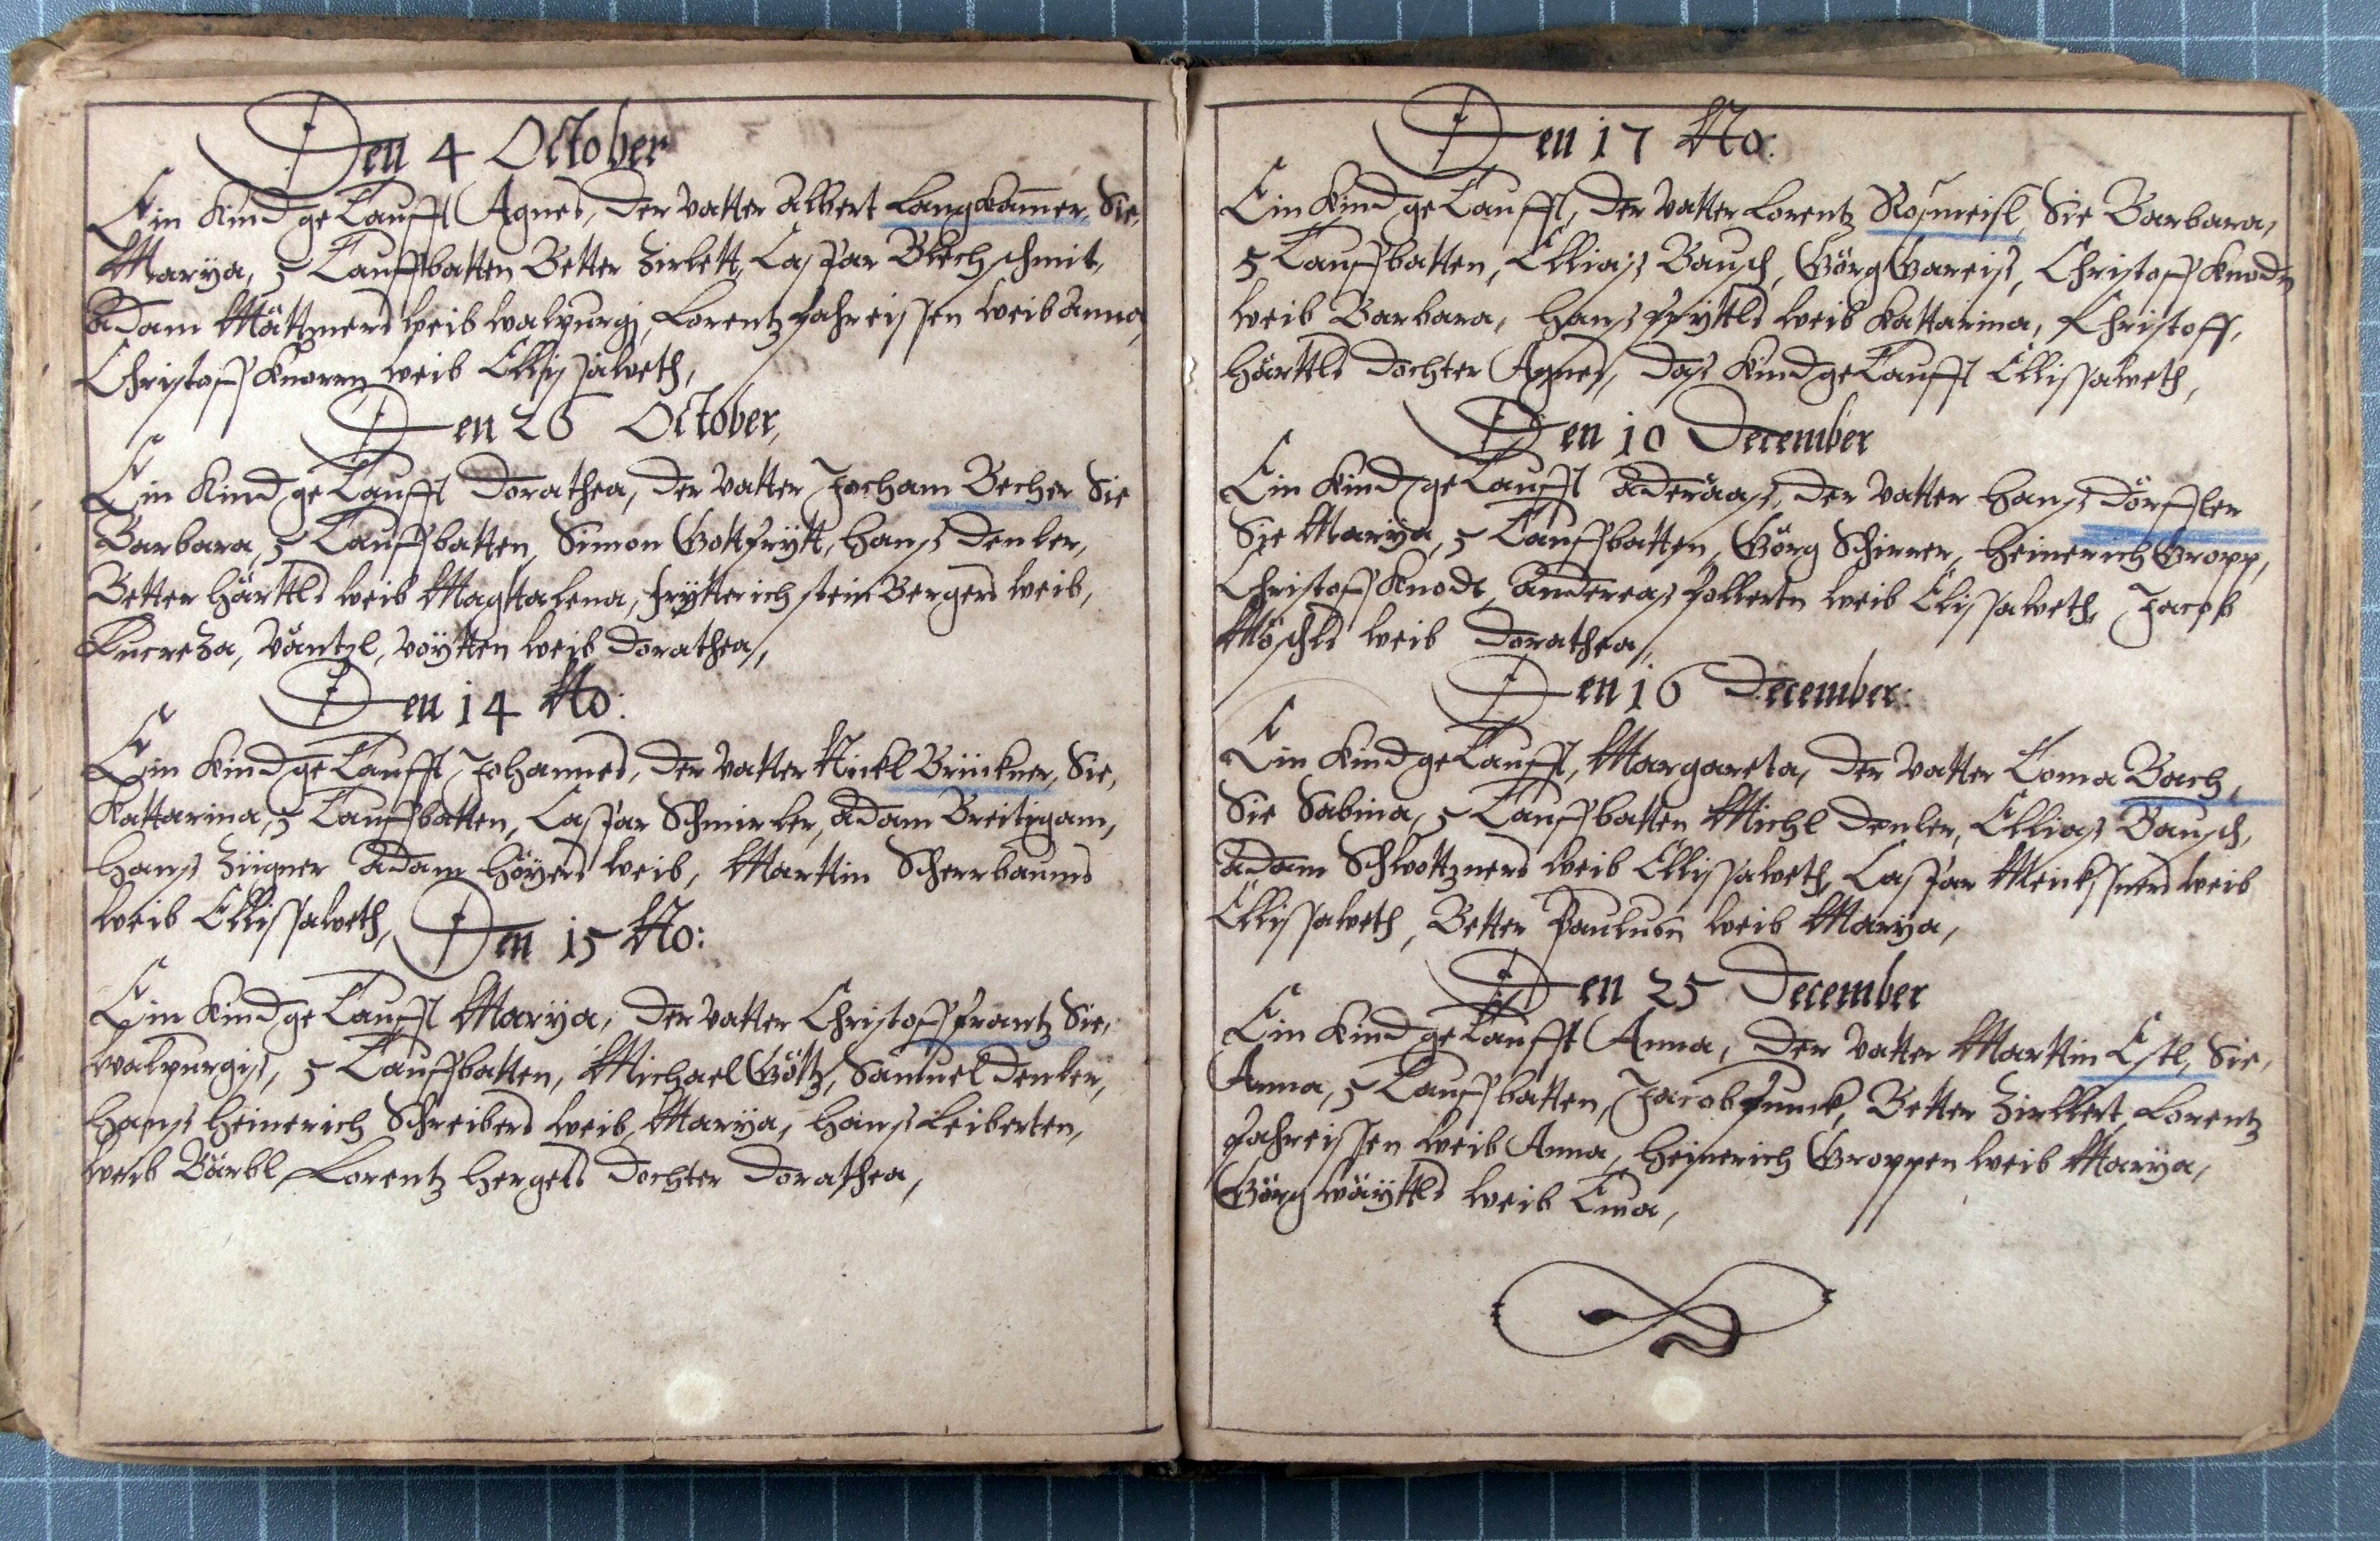 Den 4 October
Ein Kind getaufft Agnes, der vatter Albert Langhamer, Sie,
Marÿa, 5 Tauffbatten Better Zirkett, Caspar Blechschmit,
Adam Mättzners weib walpurgj, Lorentz Fahreissen weib Anna,
Christoff Knorrn weib Ellissaweth,
Den 26 October,
Ein Kind getaufft Dorathea, der vatter Jocham Becher Sie
Barbara, 5 Tauffbatten, Simon Gottfrÿtt, Hanß Denler,
Better Härttls weib Magttalena, Frÿtterich steinBergers weib,
Lucreza, Väntzl, Voÿtten weib Dorathea,
Den 14 No:
Ein Kind getaufft Johannes, der vatter Nickl Brückner, Sie,
Kattarina, 5 Tauffbatten, Caspar Schmirler, Adam Breitigam,
Hanß Zügner Adam Höÿers weib, Marttin Scherrbaums
weib Ellissaweth,
Den 15 No:
Ein Kind getaufft Marÿa, der vatter Christoff Frantz Sie,
walpurgis, 5 Tauffbatten, Michael Göttz, Samuel Denler,
Hanß Heinerich Schreibers weib, Marÿa, Hanß Leiberten,
weib Bärbl, Lorentz Hergets Dochter Dorathea,
Den 17 No:
Ein Kind getaufft, der vatter Lorentz Roßmeisl, Sie Barbara,
5 Tauffbatten, Elliaß Bausch, Görg Gareiß, Christoff Knodn
weib Barbara, Hanß Frÿttls weib Kattarina, Christoff,
Härttls Dochter Agnes, daß Kind getaufft Ellissaweth,
Den 10 December
Ein Kind getaufft Aderäaß, der vatter Hanß Dörffler
Sie Marÿa, 5 Tauffbatten, Görg Schirner, Heinerich Gropp,
Christoff Knodt, Andereaß Follertn weib Elissaweth, Jacob
Möschls weib Dorathea,
Den 16 December:
Ein Kind getaufft, Margareta, der vatter Toma Bach,
Sie Sabina, 5 Tauffbatten Michl Denler, Elliaß Bausch,
Adam Schwottzners weib Ellissaweth, Caspar Meickssners weib
Ellissaweth, Better Paulusn weib Marÿa,
Den 25 December
Ein Kind getaufft Anna, der vatter Marttin Estl, Sie,
Anna, 5 Tauffbatten, Jacob Funck, Better Zirkkert, Lorentz
Fahreissen weib Anna, Heinerich Groppen weib Marÿa,
Görg wäÿttls weib Eua,